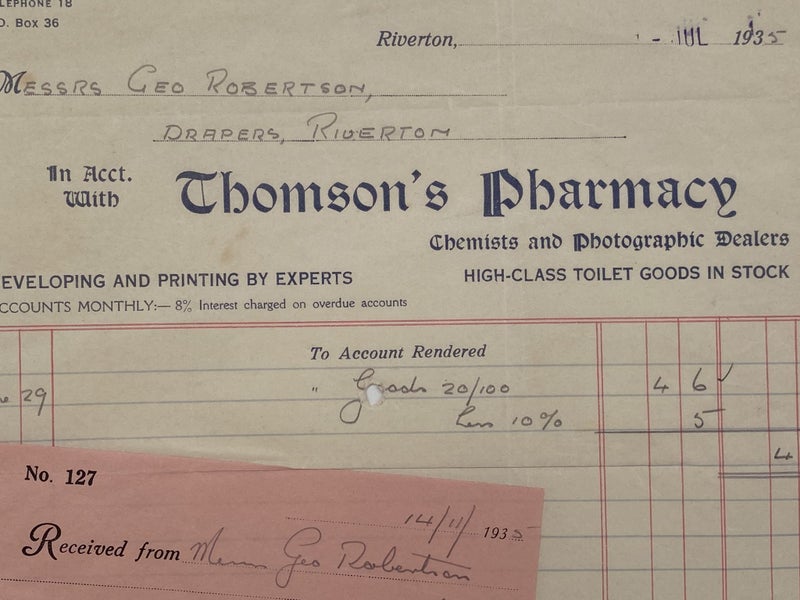 TELEPHONE 18
P.O. Box 36
Riverton, - JUL 1935
Messrs Geo Robertson,
Drapers, Riverton
In Acct. With Thomson's Pharmacy
Chemists and Photographic Dealers
DEVELOPING AND PRINTING BY EXPERTS HIGH-CLASS TOILET GOODS IN STOCK
ACCOUNTS MONTHLY:— 8% Interest charged on overdue accounts
To Account Rendered
29 " Goods 20/100 4 6 ✓
Less 10% 5
4
No. 127
14/11/1935
Received from Messrs Geo Robertson